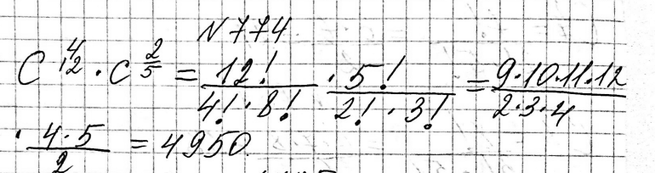 N 774
C 4/12 · C 2/5 = 12!/(4! · 8!) · 5!/(2! · 3!) = 9·10·11·12/(2·3·4)
· 4·5/2 = 4950